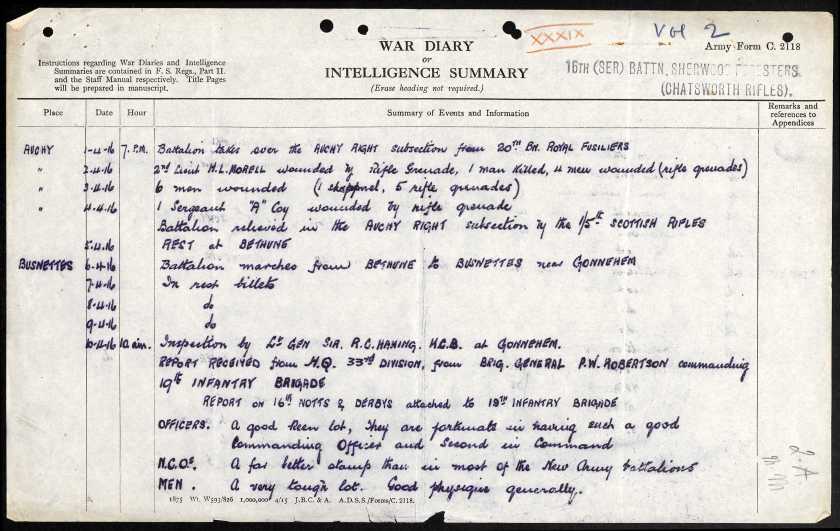 XXXIX
Vol 2
WAR DIARY
or
INTELLIGENCE SUMMARY
(Erase heading not required.)
Army Form C. 2118
Instructions regarding War Diaries and Intelligence
Summaries are contained in F. S. Regs., Part II.
and the Staff Manual respectively. Title Pages
will be prepared in manuscript.
16TH (SER) BATTN. SHERWOOD FORESTERS.
(CHATSWORTH RIFLES).
Place Date Hour Summary of Events and Information Remarks and references to Appendices
AUCHY 1-4-16 7. P.M. Battalion takes over the AUCHY RIGHT subsection from 20TH BN. ROYAL FUSILIERS
" 2-4-16 2nd Lieut H.L. MORELL wounded by Rifle Grenade, 1 man killed, 4 men wounded (rifle grenades)
" 3-4-16 6 men wounded (1 shrapnel, 5 rifle grenades)
" 4-4-16 1 Sergeant "A" Coy wounded by rifle grenade
Battalion relieved in the AUCHY RIGHT subsection by the 1/5th SCOTTISH RIFLES
5-4-16 REST at BETHUNE
BUSNETTES 6-4-16 Battalion marches from BETHUNE to BUSNETTES near GONNEHEM
7-4-16 In rest billets
8-4-16 do
9-4-16 do
10-4-16 10 a.m. Inspection by Lt GEN SIR. R.C. HAKING. K.C.B. at GONNEHEM.
REPORT RECEIVED from H.Q. 33rd DIVISION, from BRIG. GENERAL P.W. ROBERTSON commanding
19th INFANTRY BRIGADE
REPORT on 16th NOTTS & DERBYS attached to 19TH INFANTRY BRIGADE
OFFICERS. A good keen lot, They are fortunate in having such a good
Commanding Officer and Second in Command
N.C.Os. A far better stamp than in most of the New Army battalions
MEN. A very tough lot. Good physique generally.
1875 Wt. W593/826 1,000,000 4/15 J.B.C. & A. A.D.S.S./Forms/C. 2118.